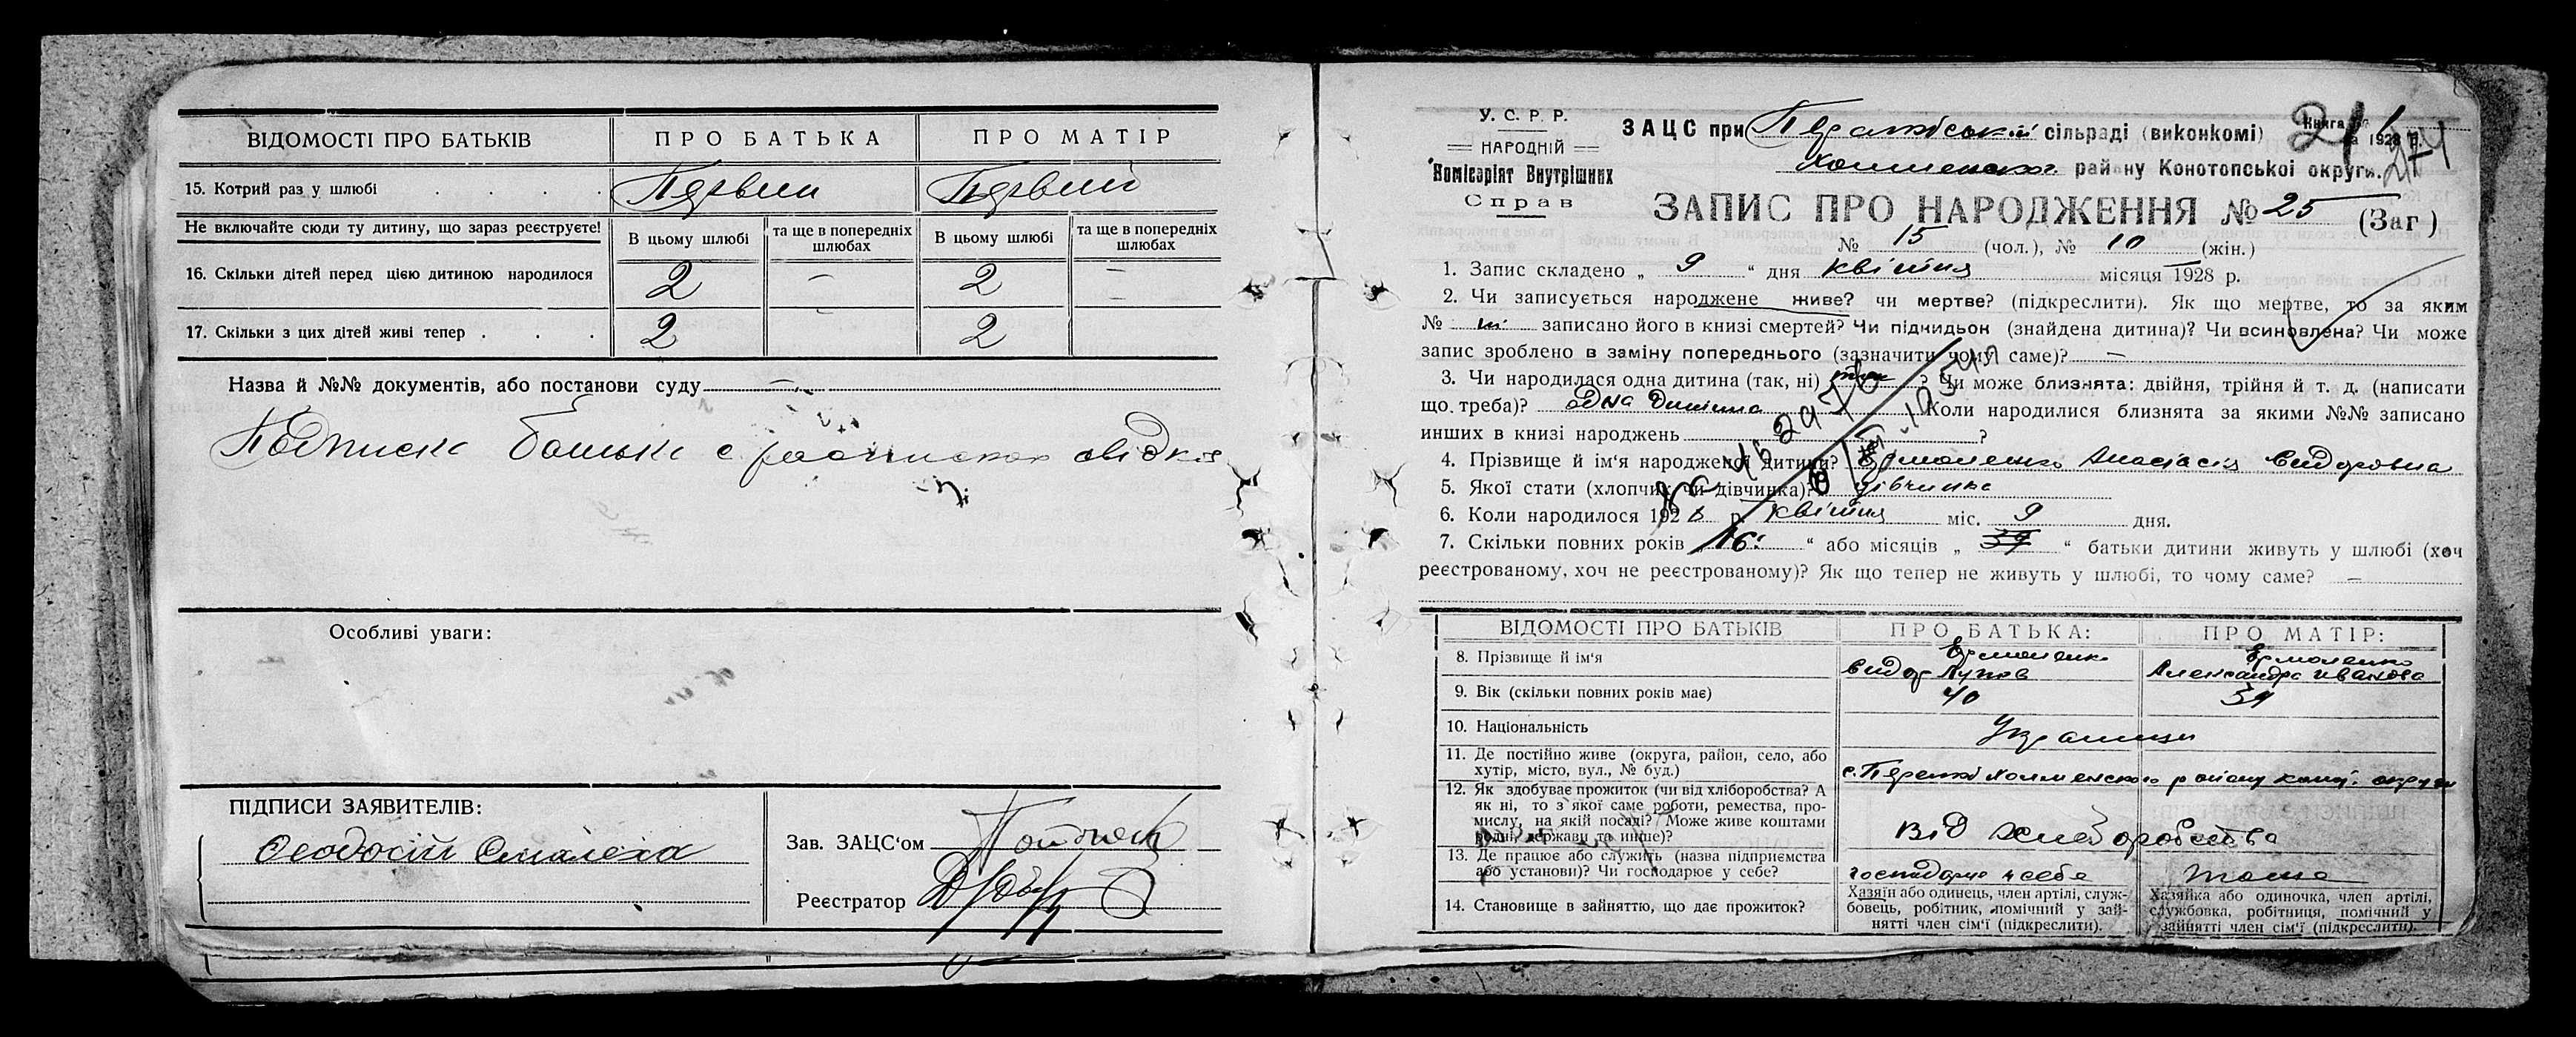 ВІДОМОСТІ ПРО БАТЬКІВ ПРО БАТЬКА ПРО МАТІР
15. Котрий раз у шлюбі . . . . Первий Первий
Не включайте сюди ту дитину, що зараз реєструєте! В цьому шлюбі та ще в попередніх шлюбах В цьому шлюбі та ще в попередніх шлюбах
16. Скільки дітей перед цією дитиною народилося 2 — 2 —
17. Скільки з цих дітей живі тепер . . . 2 2
Назва й №№ документів, або постанови суду —
Подписка
Особливі уваги:
ПІДПИСИ ЗАЯВИТЕЛІВ:
Феодосій
Зав. ЗАЦС'ом
Реєстратор
У. С. Р. Р.
НАРОДНІЙ
Комісаріят Внутрішних
Справ
ЗАЦС при сільраді (виконкомі) Книга 1928 р.
району Конотопської округи.
ЗАПИС ПРО НАРОДЖЕННЯ № 25 (Заг)
№ 15 (чол.), № 10 (жін.)
1. Запис складено „ 9 “ дня квітня місяця 1928 р.
2. Чи записується народжене живе? чи мертве? (підкреслити). Як що мертве, то за яким
№ записано його в книзі смертей? Чи підкидьок (знайдена дитина)? Чи всиновлена? Чи може
запис зроблено в заміну попереднього (зазначити чому саме)? —
3. Чи народилася одна дитина (так, ні) так ? Чи може близнята: двійня, трійня й т. д. (написати
що треба)? одна дитина Коли народилися близнята за якими №№ записано
инших в книзі народжень ?
4. Прізвище й ім'я народженої дитини? Ермоленко Анасіасія Сидоровна
5. Якої стати (хлопчик чи дівчинка)? дівчинка
6. Коли народилося 1928 р. квітня міс. 9 дня.
7. Скільки повних років „ 16 “ або місяців „ 39 “ батьки дитини живуть у шлюбі (хоч
реєстрованому, хоч не реєстрованому)? Як що тепер не живуть у шлюбі, то чому саме? —
ВІДОМОСТІ ПРО БАТЬКІВ ПРО БАТЬКА: ПРО МАТІР:
8. Прізвище й ім'я Ермоленко Сидор Ермоленко Александра Иванова
9. Вік (скільки повних років має) 40 39
10. Національність Украинци
11. Де постійно живе (округа, район, село, або
хутір, місто, вул., № буд.) району округи
12. Як здобуває прожиток (чи від хліборобства? А
як ні, то з якої саме роботи, ремества, про-
мислу, на якій посаді? Може живе коштами
родні, держави та инше)? Від хлеборобства
13. Де працює або служить (назва підприємства
або установи)? Чи господарює у себе? господарює у себе тоже
14. Становище в зайняттю, що дає прожиток?
Хазяїн або одинець, член артілі, служ-
бовець, робітник, помічний у зай-
нятті член сім'ї (підкреслити).
Хазяйка або одиночка, член артілі,
службовка, робітниця, помічний у
зайнятті член сім'ї (підкреслити).